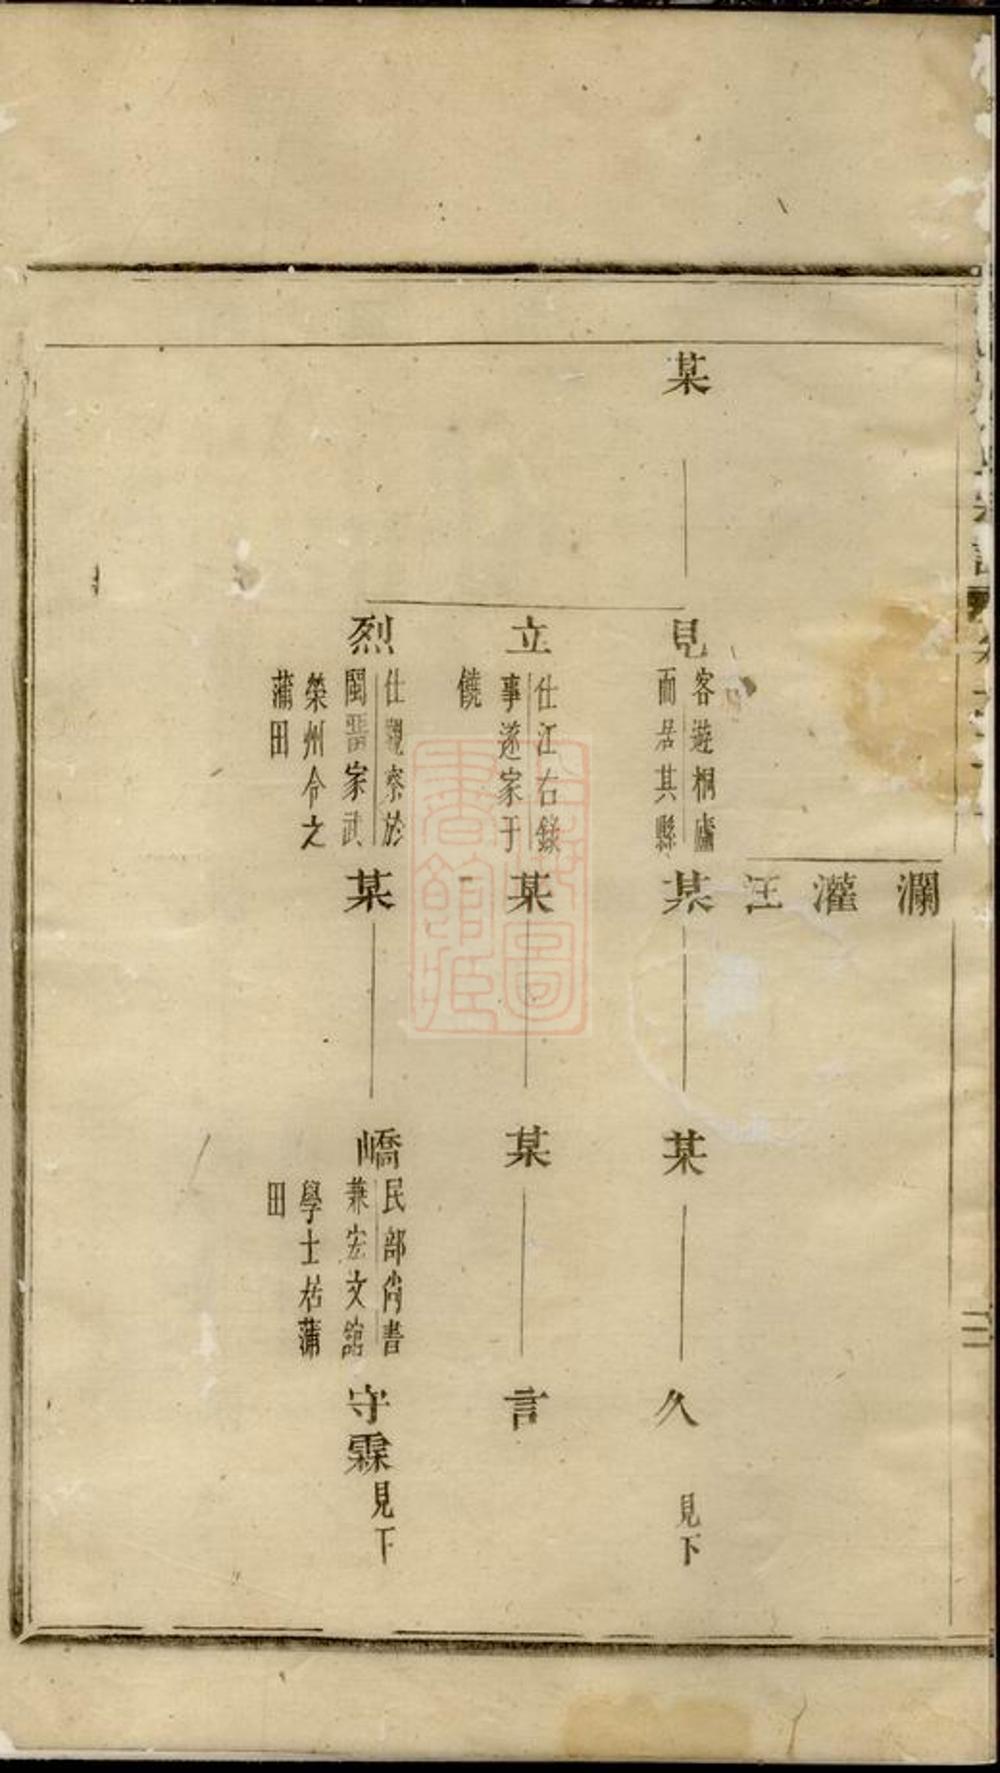 瀾
灌
汪
某
見
客遊桐廬
而居其縣
某
某
久
見下
立
仕江右錄
事遂家于
饒
某
某
言
烈
仕觀察於
閩晋家武
榮州令之
蒲田
某
嶠
民部尚書
兼宏文館
學士居蒲
田
守霖
見下
上海圖
書館藏
二